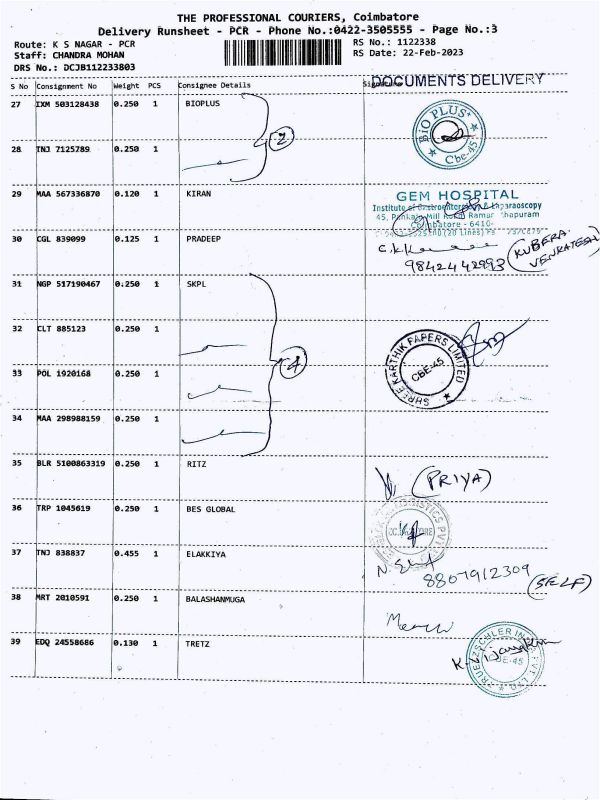 THE PROFESSIONAL COURIERS, Coimbatore
Delivery Runsheet - PCR - Phone No.:0422-3505555 - Page No.:3
Route: K S NAGAR - PCR
Staff: CHANDRA MOHAN
DRS No.: DCJB112233803
RS No.: 1122338
RS Date: 22-Feb-2023
DOCUMENTS DELIVERY
S No Consignment No Weight PCS Consignee Details
27 IXM 503128438 0.250 1 BIOPLUS
BIO PLUS
Cbe-45
2
28 TNJ 7125789 0.250 1
29 MAA 567336870 0.120 1 KIRAN
GEM HOSPITAL
Institute of
45, Pankaja Mill
Coimbatore - 6410
30 CGL 839099 0.125 1 PRADEEP
9842442993
(KUBERA VENKATESH)
31 NGP 517190467 0.250 1 SKPL
32 CLT 885123 0.250 1
SHREE KARTHIK PAPERS LIMITED
CBE-45
4
33 POL 1920168 0.250 1
34 MAA 298988159 0.250 1
35 BLR 5100863319 0.250 1 RITZ
(PRIYA)
36 TRP 1045619 0.250 1 BES GLOBAL
37 TNJ 838837 0.455 1 ELAKKIYA
8807912309
(SELF)
38 MRT 2010591 0.250 1 BALASHANMUGA
39 EDQ 24558686 0.130 1 TRETZ